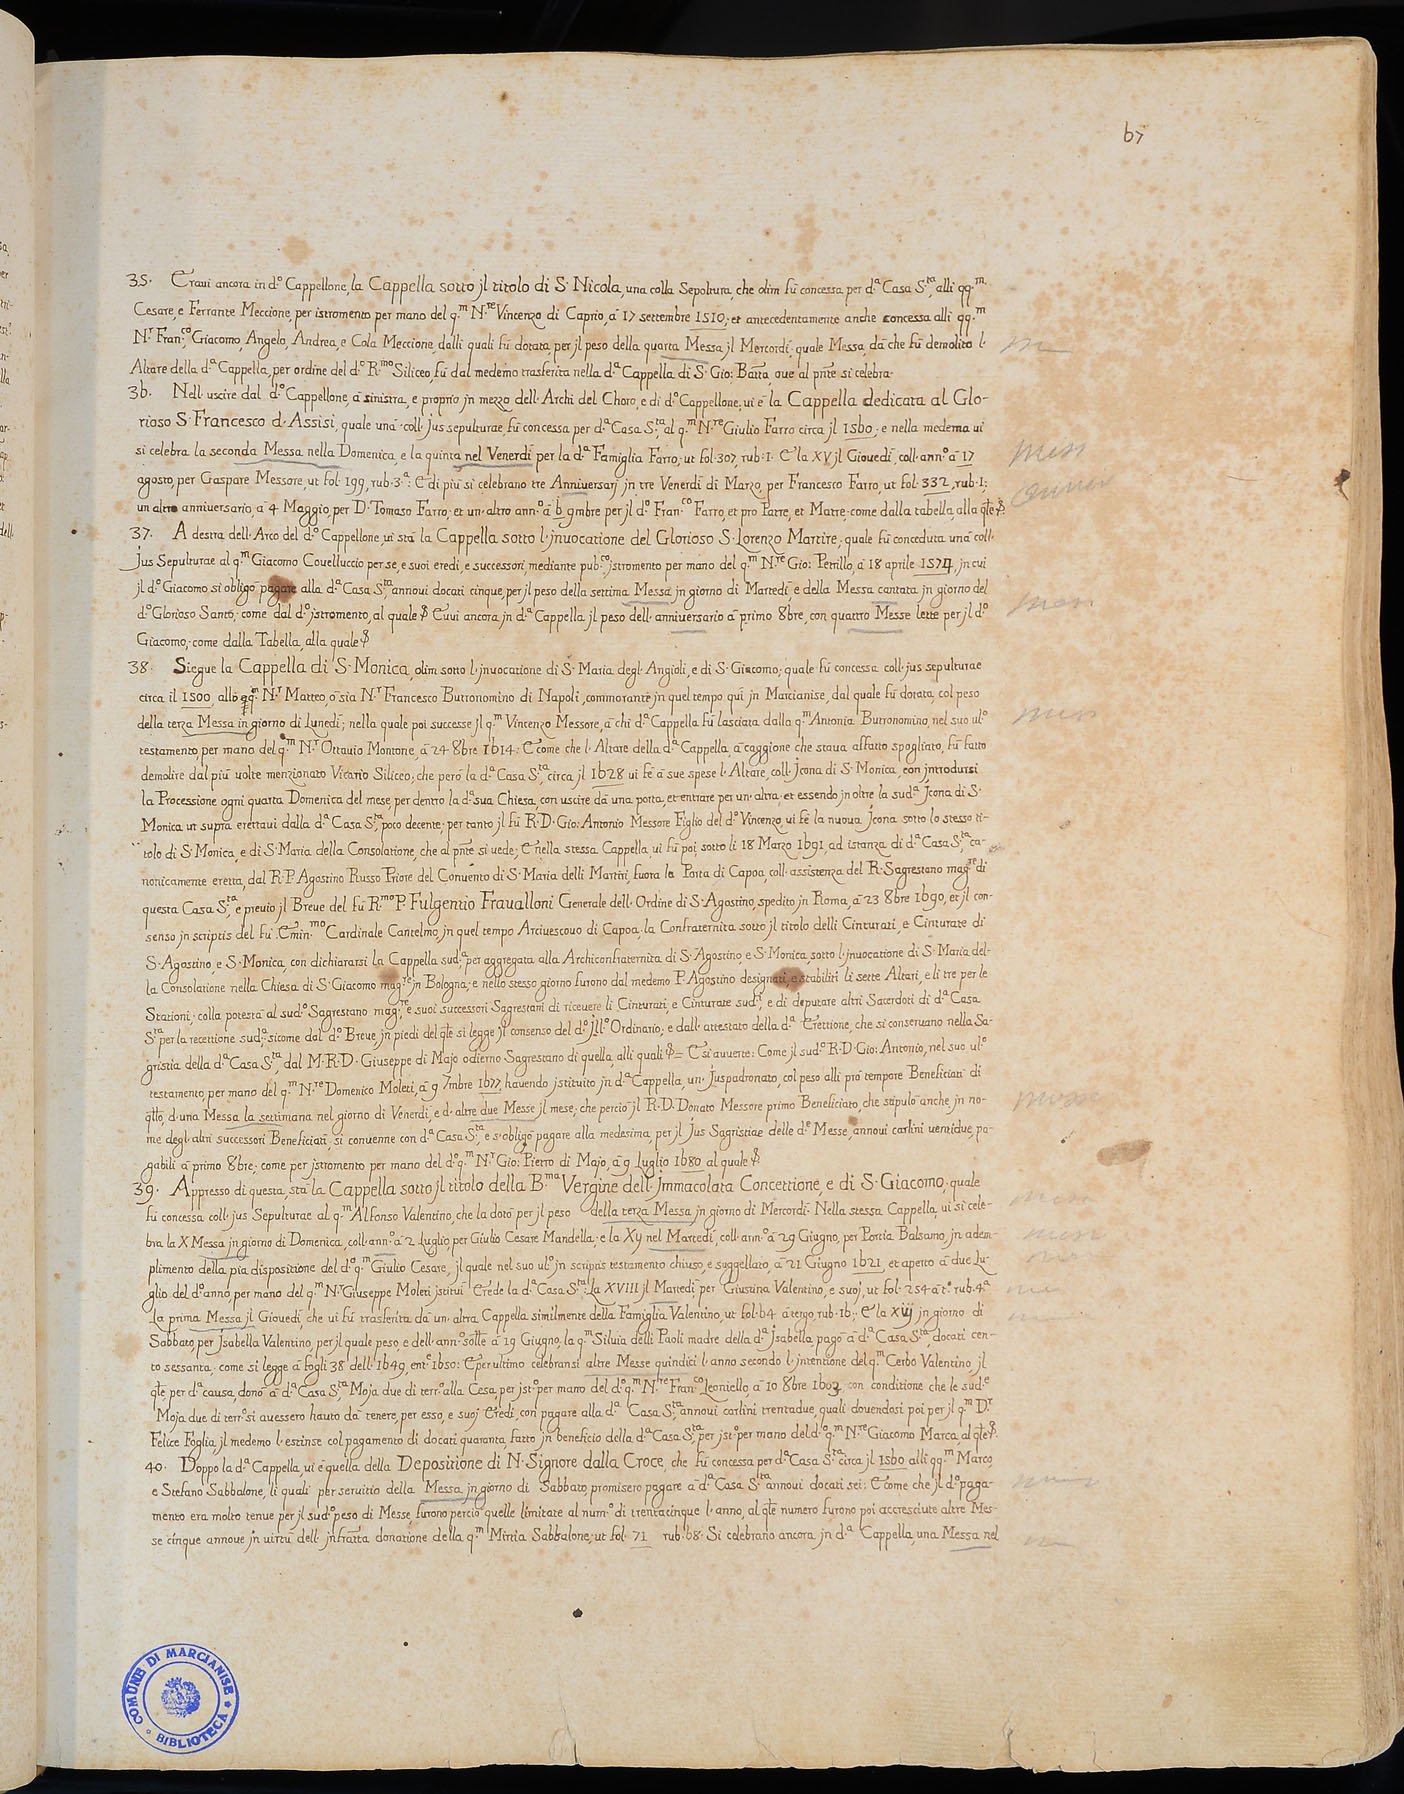 67
35. Eravi ancora in d.º Cappellone, la Cappella sotto jl titolo di S. Nicola, una colla Sepoltura, che olim fù concessa per d.ª Casa S.ta, alli qq.m
Cesare, e Ferrante Meccione, per istromento per mano del q.m N.re Vincenzo di Caprio, à 17 settembre 1510; et antecedentemente anche concessa alli qq.m
N.r Fran.co, Giacomo, Angelo, Andrea, e Cola Meccione, dalli quali fù dotata, per jl peso della quarta Messa jl Mercordì; quale Messa, dà che fù demolito l'
Altare della d.ª Cappella, per ordine del d.º R.mo Siliceo, fù dal medemo trasferita nella d.ª Cappella di S. Gio: Batta, ove al pnte si celebra.
36. Nell'uscire dal d.º Cappellone, à sinistra, e proprio jn mezzo dell'Archi del Choro, e di d.º Cappellone, vi è la Cappella dedicata al Glo-
rioso S. Francesco d'Assisi, quale una coll'jus sepulturae, fù concessa per d.ª Casa S.ta al q.m N.re Giulio Farro circa jl 1560; e nella medema vi
si celebra la seconda Messa nella Domenica, e la quinta nel Venerdì per la d.ª Famiglia Farro, ut fol. 307, rub. 1. E la XV jl Giovedì, coll'ann.º à 17
agosto, per Gaspare Messore, ut fol. 199, rub. 3.ª: E di più si celebrano tre Anniversarj jn tre Venerdì di Marzo, per Francesco Farro, ut fol. 332, rub. 1;
un altro anniversario, à 4 Maggio, per D. Tomaso Farro; et un'altro ann.º à 6 9mbre per jl d.º Fran.co Farro, et pro Patre, et Matre, come dalla tabella, alla qle &.
37. A destra dell'Arco del d.º Cappellone, vi stà la Cappella sotto l'jnvocatione del Glorioso S. Lorenzo Martire, quale fù conceduta una coll'
Jus Sepulturae al q.m Giacomo Covelluccio per se, e suoi eredi, e successori, mediante pub.co jstromento per mano del q.m N.re Gio: Petrillo, à 18 aprile 1574, jn cui
jl d.º Giacomo si obligò pagare alla d.ª Casa S.ta annovi docati cinque, per jl peso della settima Messa jn giorno di Martedì, e della Messa cantata jn giorno del
d.º Glorioso Santo, come dal d.º jstromento, al quale & Euvi ancora jn d.ª Cappella jl peso dell'anniversario à primo 8bre, con quattro Messe lette per jl d.º
Giacomo, come dalla Tabella, alla quale &
38. Siegue la Cappella di S. Monica, olim sotto l'jnvocatione di S. Maria degl'Angioli, e di S. Giacomo; quale fù concessa coll'jus sepulturae
circa il 1500, allo qq.m N.r Matteo, ò sia N.r Francesco Butronomino di Napoli, commorante jn quel tempo quì jn Marcianise, dal quale fù dotata, col peso
della terza Messa in giorno di Lunedì; nella quale poi successe jl q.m Vincenzo Messore, à chi d.ª Cappella fù lasciata dalla q.m Antonia Butronomino, nel suo ul.º
testamento, per mano del q.m N.r Ottavio Montone, à 24 8bre 1614: E come che l'Altare della d.ª Cappella, à caggione che stava affatto spogliato, fù fatto
demolire dal più volte menzionato Vicario Siliceo; che però la d.ª Casa S.ta, circa jl 1628 vi fè à sue spese l'Altare, coll'Jcona di S. Monica, con jntrodursi
la Processione ogni quarta Domenica del mese, per dentro la d.ª sua Chiesa, con uscire dà una porta, et entrare per un'altra; et essendo jn oltre la sud.ª Jcona di S.
Monica ut supra erettavi dalla d.ª Casa S.ta, poco decente; per tanto jl fù R. D. Gio: Antonio Messore Figlio del d.º Vincenzo, vi fè la nuova Jcona sotto lo stesso ti-
tolo di S. Monica, e di S. Maria della Consolatione, che al pnte si vede; E nella stessa Cappella, vi fù poi, sotto li 18 Marzo 1691, ad istanza di d.ª Casa S.ta ca-
nonicamente eretta, dal R. P. Agostino Russo Priore del Convento di S. Maria delli Martiri, fuora la Porta di Capoa, coll'assistenza del R. Sagrestano mag.re di
questa Casa S.ta, e previo jl Breve del fù R.mo P. Fulgentio Fravalloni Generale dell'Ordine di S. Agostino, spedito jn Roma, à 23 8bre 1690, et jl con-
senso jn scriptis del fù Emin.mo Cardinale Cantelmo, jn quel tempo Arcivescovo di Capoa, la Confraternita sotto jl titolo delli Cinturati, e Cinturate di
S. Agostino, e S. Monica, con dichiararsi la Cappella sud.ª per aggregata alla Archiconfraternita di S. Agostino, e S. Monica, sotto l'jnvocatione di S. Maria del-
la Consolatione nella Chiesa di S. Giacomo mag.re jn Bologna; e nello stesso giorno furono dal medemo P. Agostino designati, e stabiliti li sette Altari, e li tre per le
Stationi; colla potestà al sud.º Sagrestano mag.re, e suoi successori Sagrestani di ricevere li Cinturati, e Cinturate sud.i, e di deputare altri Sacerdoti di d.ª Casa
S.ta per la recettione sud.ª, sicome dal d.º Breve, jn piedi del qle si legge jl consenso del d.º Jll.º Ordinario; e dall'attestato della d.ª Erettione, che si conservano nella Sa-
gristia della d.ª Casa S.ta, dal M. R. D. Giuseppe di Majo odierno Sagrestano di quella, alli quali &= E si avverte: Come jl sud.º R. D. Gio: Antonio, nel suo ul.º
testamento per mano del q.m N.re Domenico Moleti, à 9 7mbre 1677, havendo jstituito jn d.ª Cappella, un'Juspadronato, col peso alli pro tempore Beneficiati di
qllo, d'una Messa la settimana nel giorno di Venerdì, e d'altre due Messe jl mese; che perciò jl R. D. Donato Messore primo Beneficiato, che stipulò anche jn no-
me degl'altri successori Beneficiati, si convenne con d.ª Casa S.ta, e s'obligò pagare alla medesima, per jl Jus Sagristiae delle d.e Messe, annovi carlini ventidue, pa-
gabili à primo 8bre; come per jstromento per mano del d.º q.m N.r Gio: Pietro di Majo, à 9 Luglio 1680 al quale &
39. Appresso di questa, stà la Cappella sotto jl titolo della B.ma Vergine dell'Jmmacolata Concettione, e di S. Giacomo; quale
fù concessa coll'jus Sepulturae al q.m Alfonso Valentino, che la dotò per jl peso della terza Messa jn giorno di Mercordì. Nella stessa Cappella, vi si cele-
bra la X Messa jn giorno di Domenica, coll'ann.º à 2 Luglio, per Giulio Cesare Mandella; e la Xij nel Martedì, coll'ann.º à 29 Giugno, per Portia Balsamo, jn adem-
plimento della pia dispositione del d.º q.m Giulio Cesare, jl quale nel suo ul.º jn scriptis testamento chiuso, e suggellato, à 21 Giugno 1621, et aperto à due Lu-
glio del d.º anno, per mano del q.m N.r Giuseppe Moleti jstituì Erede la d.ª Casa S.ta: La XVIII jl Martedì per Giustina Valentino, e suoj, ut fol. 254 à t.º rub. 4.ª
La prima Messa jl Giovedì, che vi fù trasferita dà un'altra Cappella similmente della Famiglia Valentino, ut fol. 64 à tergo, rub. 16: E la xiij jn giorno di
Sabbato, per Jsabella Valentino, per jl quale peso, e dell'ann.º solle à 19 Giugno, la q.m Silvia delli Paoli madre della d.ª Jsabella, pagò à d.ª Casa S.ta, docati cen-
to sessanta, come si legge à fogli 38 dell'1649, ent.e 1650: E per ultimo celebransi altre Messe quindici l'anno secondo l'jntentione del q.m Cerbo Valentino, jl
qle, per d.ª causa, donò à d.ª Casa S.ta Moja due di terr.º alla Cesa, per jst.º per mano del d.º q.m N.re Fran.co Leoniello, à 10 8bre 1603, con conditione che le sud.e
Moja due di terr.º si avessero havto dà tenere, per esso, e suoj Eredi, con pagare alla d.ª Casa S.ta annovi carlini trentadue, quali dovendosi poi per jl q.m D.r
Felice Foglia, jl medemo l'estinse col pagamento di docati quaranta, fatto jn beneficio della d.ª Casa S.ta, per jst.º per mano del d.º q.m N.re Giacomo Marca, al qle &.
40. Doppo la d.ª Cappella, vi è quella della Depositione di N. Signore dalla Croce, che fù concessa per d.ª Casa S.ta circa jl 1560 alli qq.m Marco,
e Stefano Sabbalone, li quali per servitio della Messa jn giorno di Sabbato, promisero pagare à d.ª Casa S.ta annovi docati sei: E come che jl d.º paga-
mento era molto tenue per jl sud.º peso di Messe, furono perciò quelle limitate al num.º di trentacinque l'anno, al qle numero furono poi accresciute altre Mes-
se cinque annove jn virtù dell'jnfratta donatione della q.m Mintia Sabbalone, ut fol. 71 rub. 68. Si celebrano ancora jn d.ª Cappella, una Messa nel
COMUNE DI MARCIANISE
BIBLIOTECA